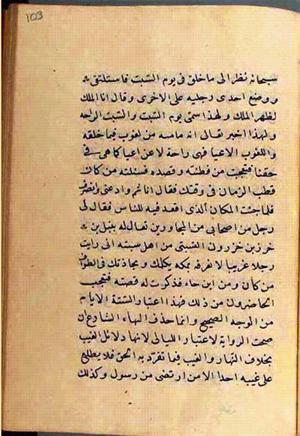 103
سبحانه نظر الى ما خلق فى يوم السبت فاستلقى
ووضع احدى رجليه على الاخرى وقال انا الملك
لظهر الملك ولهذا سمى يوم السبت والسبت الراحه
ولهذا اخبر تعالى انه ما مسه من لغوب فيما خلقه
واللغوب الاعيا فهى راحة لا عن اعيا كما هى فى
حقنا فتعجبت من فطنته وقصده فسئلته من كان
قطب الزمان فى وقتك فقال انا ثم ودعنى وانصرف
فلما جئت المكان الذى اقعد فيه للناس فقال لى
رجل من اصحابى من المجاورين يقال له نبيل بن
خزر بن خزرون السبتى من اهل سبته انى رايت
رجلا غريبا لا نعرفه بمكه يكلمك ويحادثك فى الطواف
من كان ومن اين جاء فذكرت له قصته فتعجب
الحاضرون من ذلك فهذا اعتبار الستة الايام
من الوجه الصحيح وانما حذف الهاء الشارع ان
صحت الرواية لاعتبار الليالى لانها دلائل الغيب
بخلاف النهار والغيب فما تفرد به الحق فلا يطلع
على غيبه احدا الا من ارتضى من رسول وكذلك